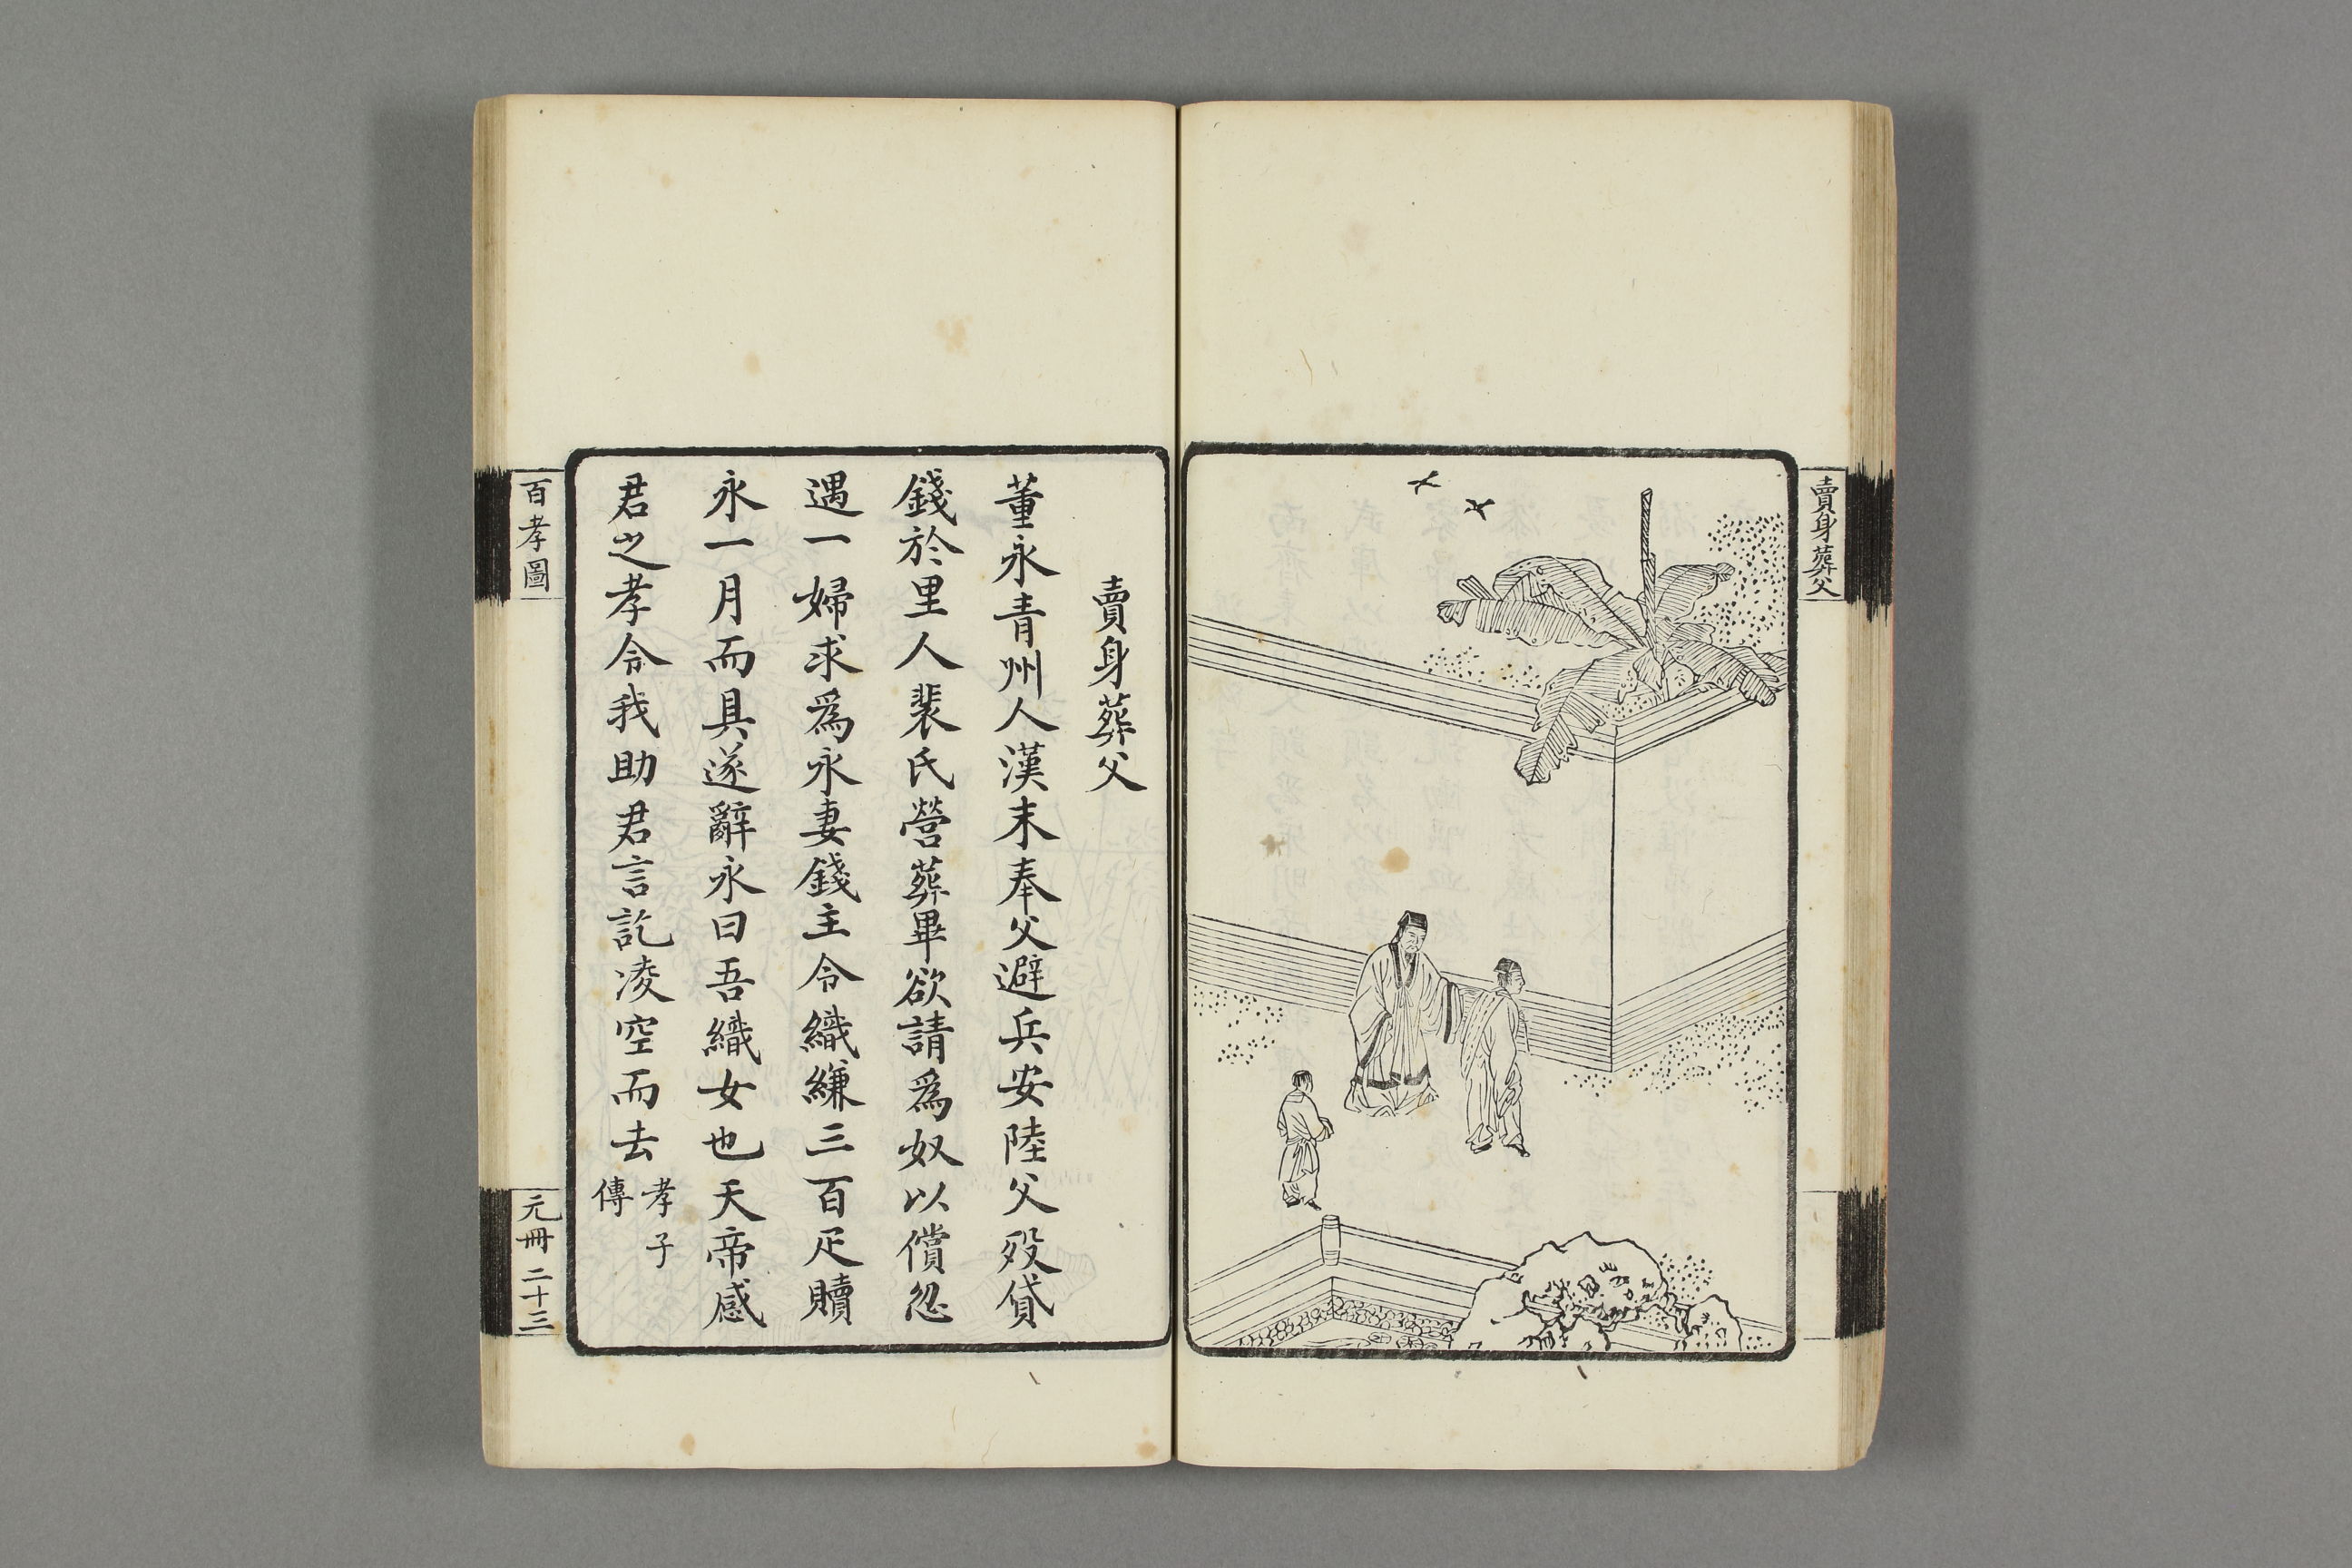 賣身葬父
賣身葬父
董永青州人漢末奉父避兵安陸父歿貸
錢於里人裴氏營葬畢欲請爲奴以償忽
遇一婦求爲永妻錢主令織縑三百疋贖
永一月而具遂辭永曰吾織女也天帝感
君之孝令我助君言訖凌空而去孝子
傳
百孝圖
元冊 二十三